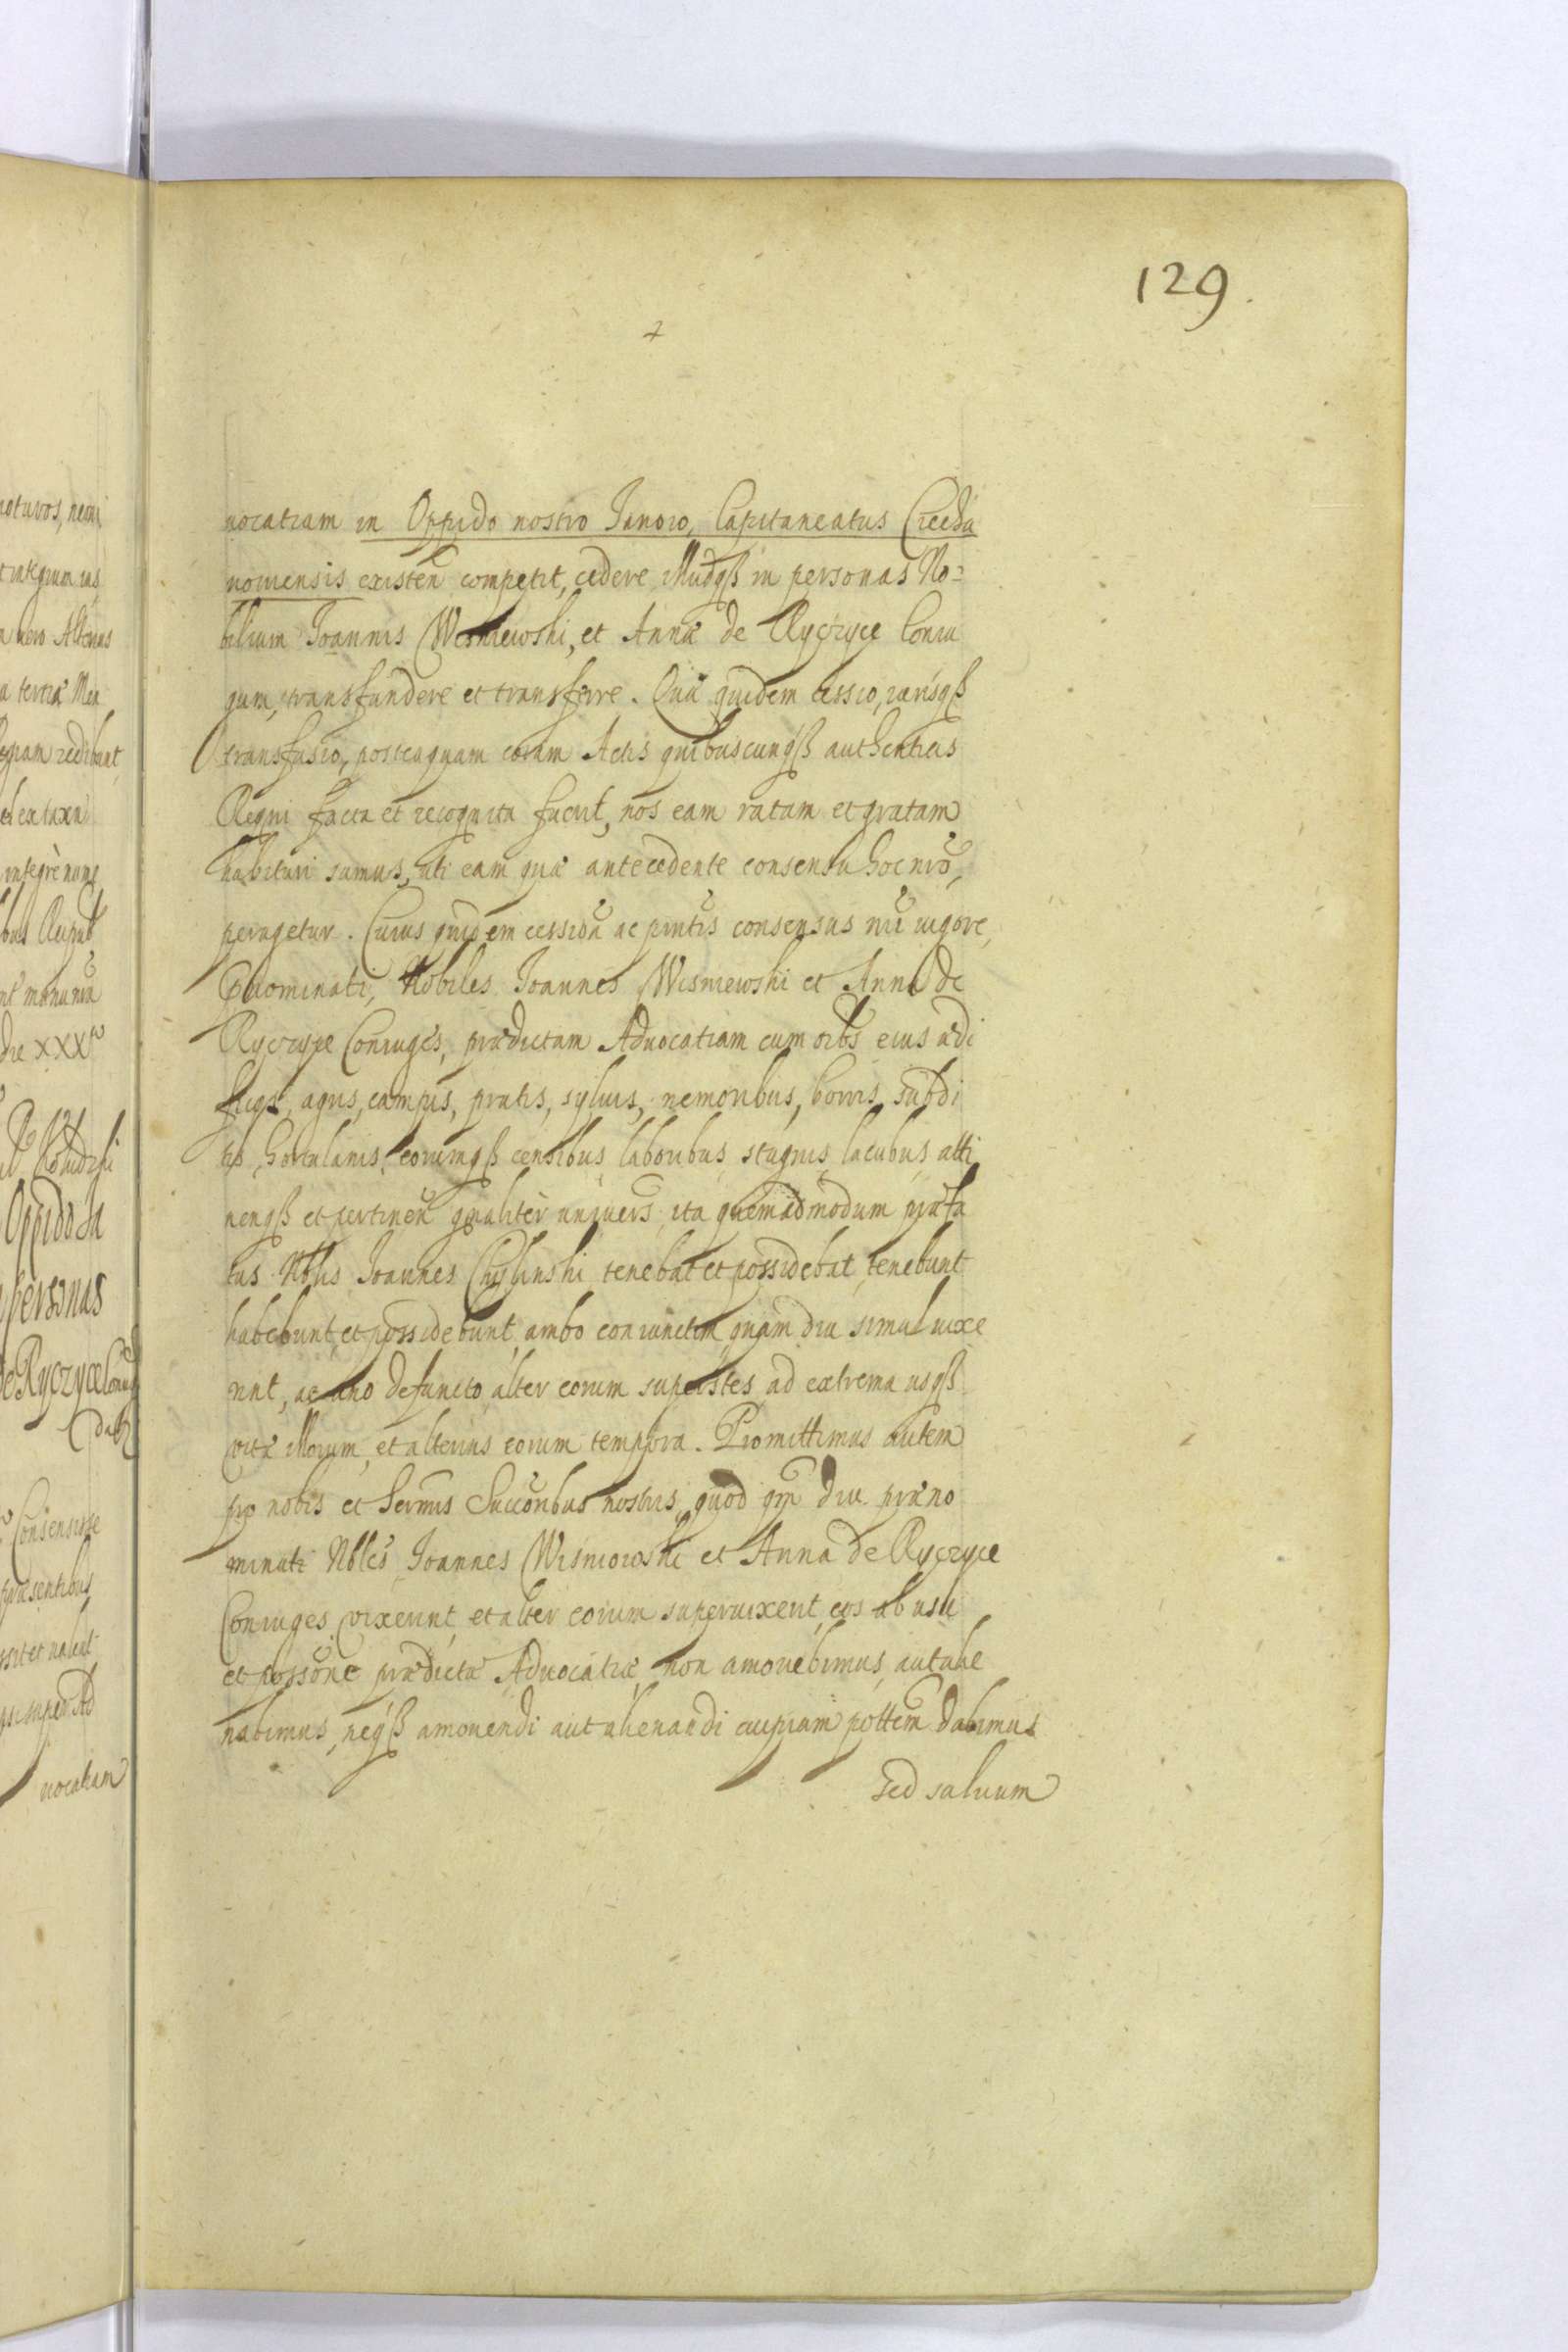 129.
uocatiam in Oppido nostro Janow, Capitaneatus Creeda
nouiensis existeñ competit, cedere illudqȝ in personas No=
bilium Joannis Wisniewski, et Annæ de Ryczyce Coniu
gum, transfundere et transferre. Quæ quidem cessio, iurisqȝ
transfusio, posteaquam coram Actis quibuscunqȝ authenticis
Regni facta et recognita fuerit, nos eam ratam et gratam
habituri sumus, uti eam quæ antecedente consensu hoc nrõ,
peragetur. Cuius quidem cessiõn ac pntis consensus nri uigore,
Pnominati, Nobiles Joannes Wisniewski et Anna de
Ryczyce Coniuges, prædictam Aduocatiam cum oibs eius ædi
ficijs, agris, campis, pratis, syluis, nemoribus, borris, subdi
tis, hortulanis, eorumqȝ censibus, laboribus, stagnis, lacubus atti
nenqȝ et pertineñ gnaliter uniuers, ita quemadmodum præfa
tus Nblis Joannes Chylinski tenebat et possidebat, tenebunt
habebunt, et possidebunt, ambo coniunctim, quam diu simul uixe
rint, ac uno defuncto alter eorum superstes, ad extrema usqȝ
vitæ illorum, et alterius eorum tempora. Promittimus autem
pro nobis et Sermis Succõribus nostris, quod qm diu præno
minati Nbles Joannes Wisniowski et Anna de Ryczyce
Coniuges vixerint, et alter eorum superuixerit, eos ab usu
et possõne prædictæ Aduocatiæ non amouebimus, aut alie
nabimus, neqȝ amouendi aut alienandi cuipiam pottem dabimus
sed saluum